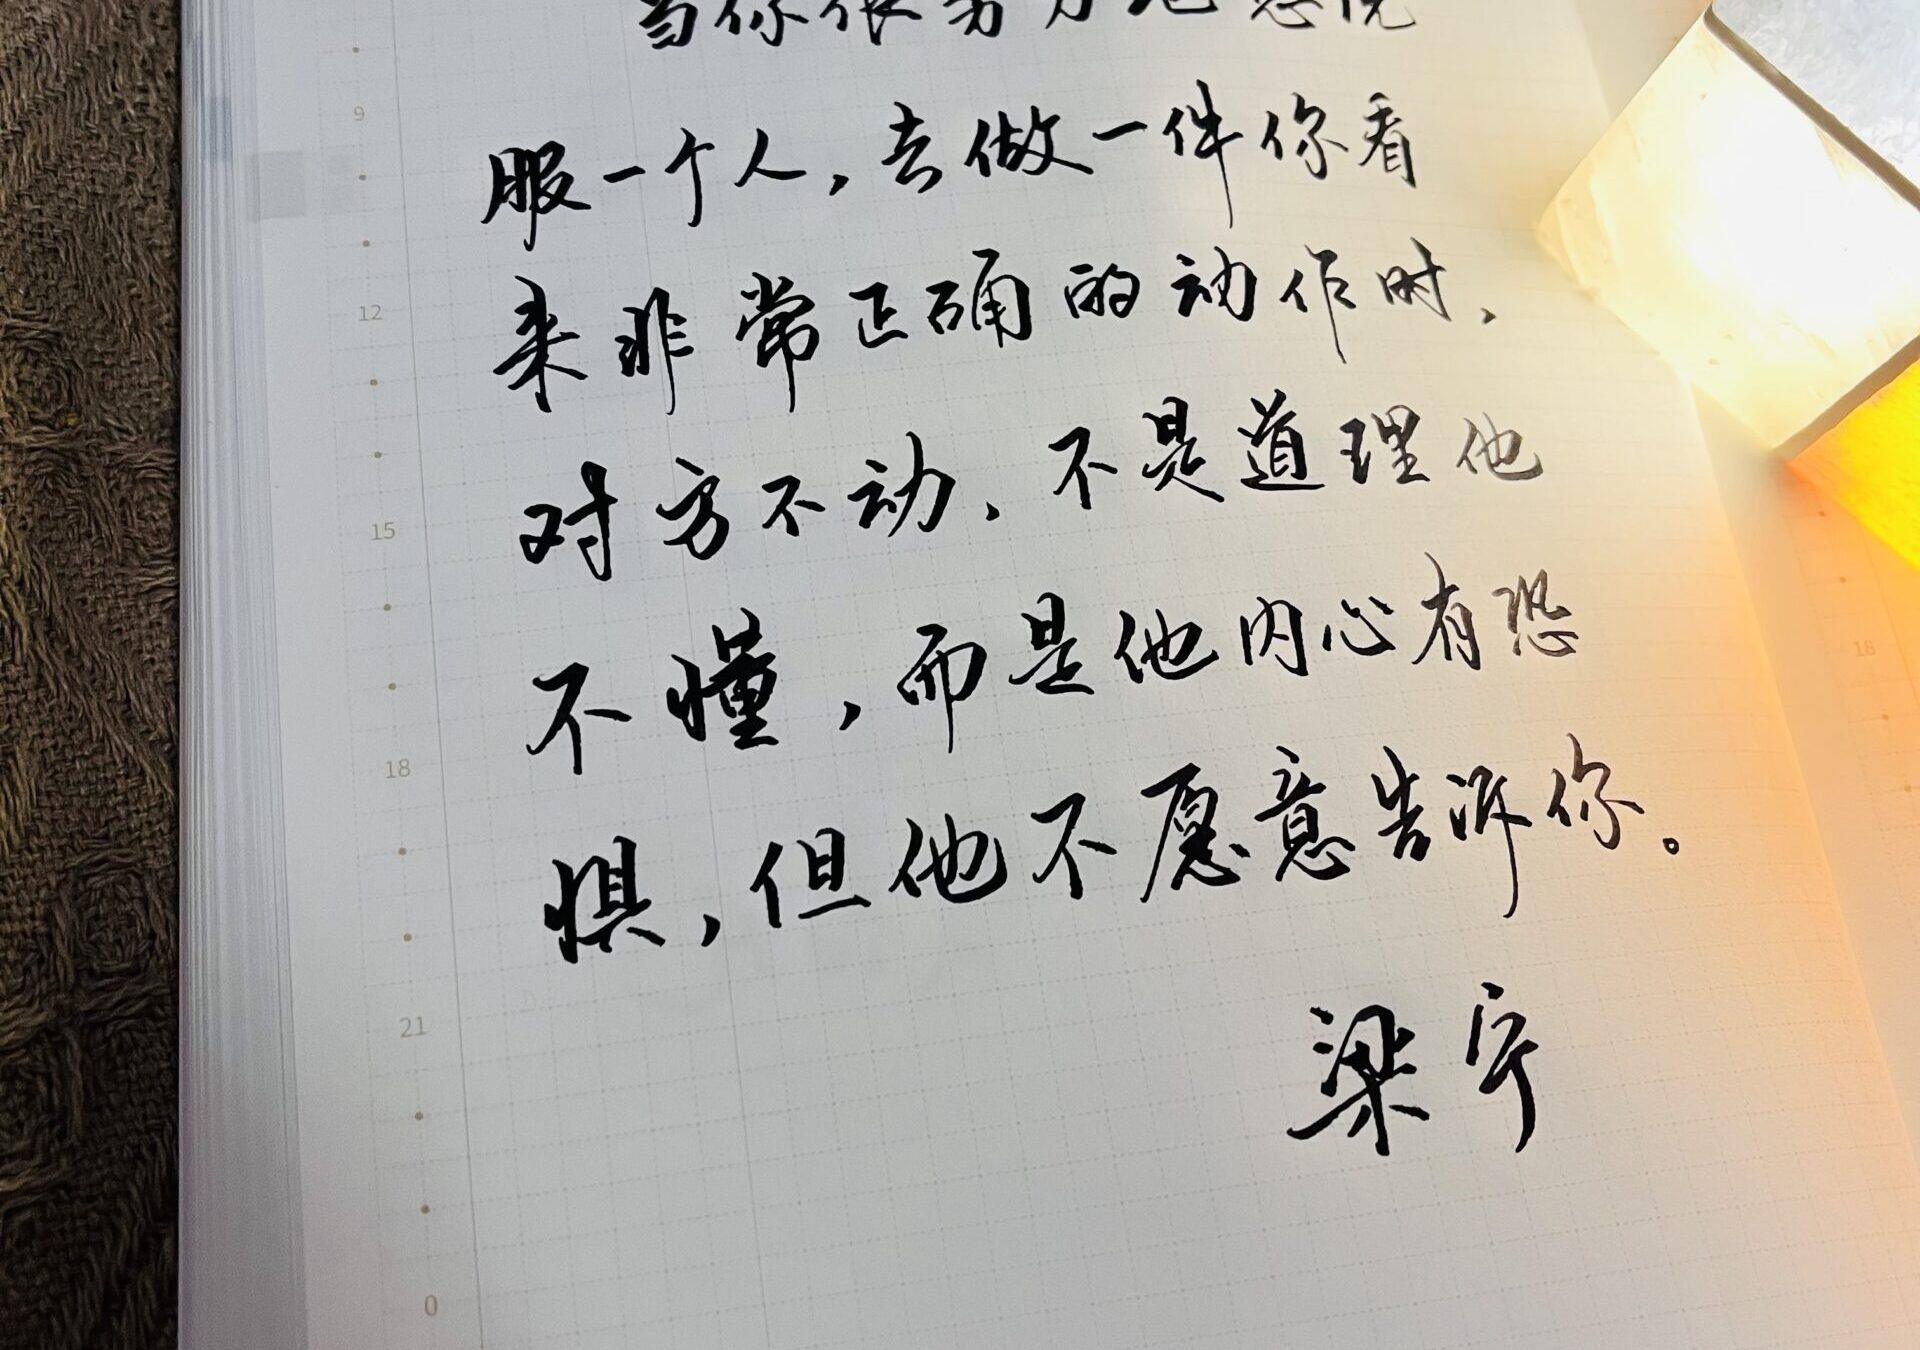 当你很努力地想说
服一个人,去做一件你看
来非常正确的动作时、
对方不动、不是道理他
不懂,而是他内心有恐
惧,但他不愿意告诉你。
梁宁
9
12
15
18
21
0
18